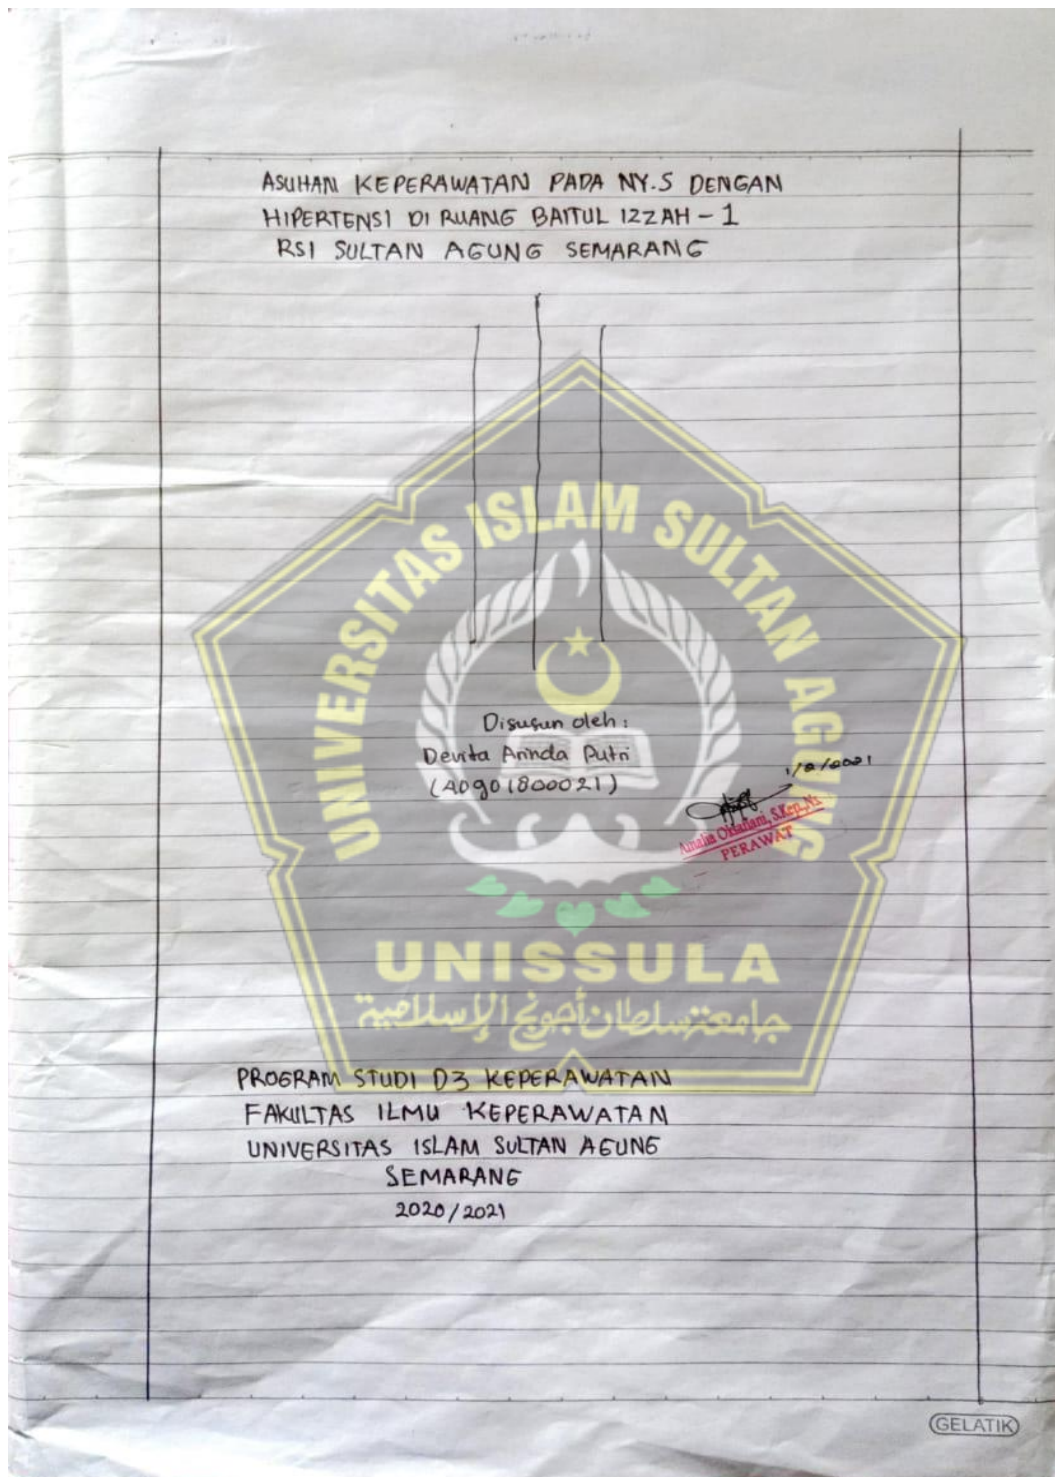 ASUHAN KEPERAWATAN PADA NY.S DENGAN
HIPERTENSI DI RUANG BAITUL IZZAH - 1
RSI SULTAN AGUNG SEMARANG
UNIVERSITAS ISLAM SULTAN AGUNG
Disusun oleh :
Devita Arinda Putri
(40901800021)
PERAWAT
UNISSULA
جامعة سلطان أجونج الإسلامية
PROGRAM STUDI D3 KEPERAWATAN
FAKULTAS ILMU KEPERAWATAN
UNIVERSITAS ISLAM SULTAN AGUNG
SEMARANG
2020/2021
GELATIK